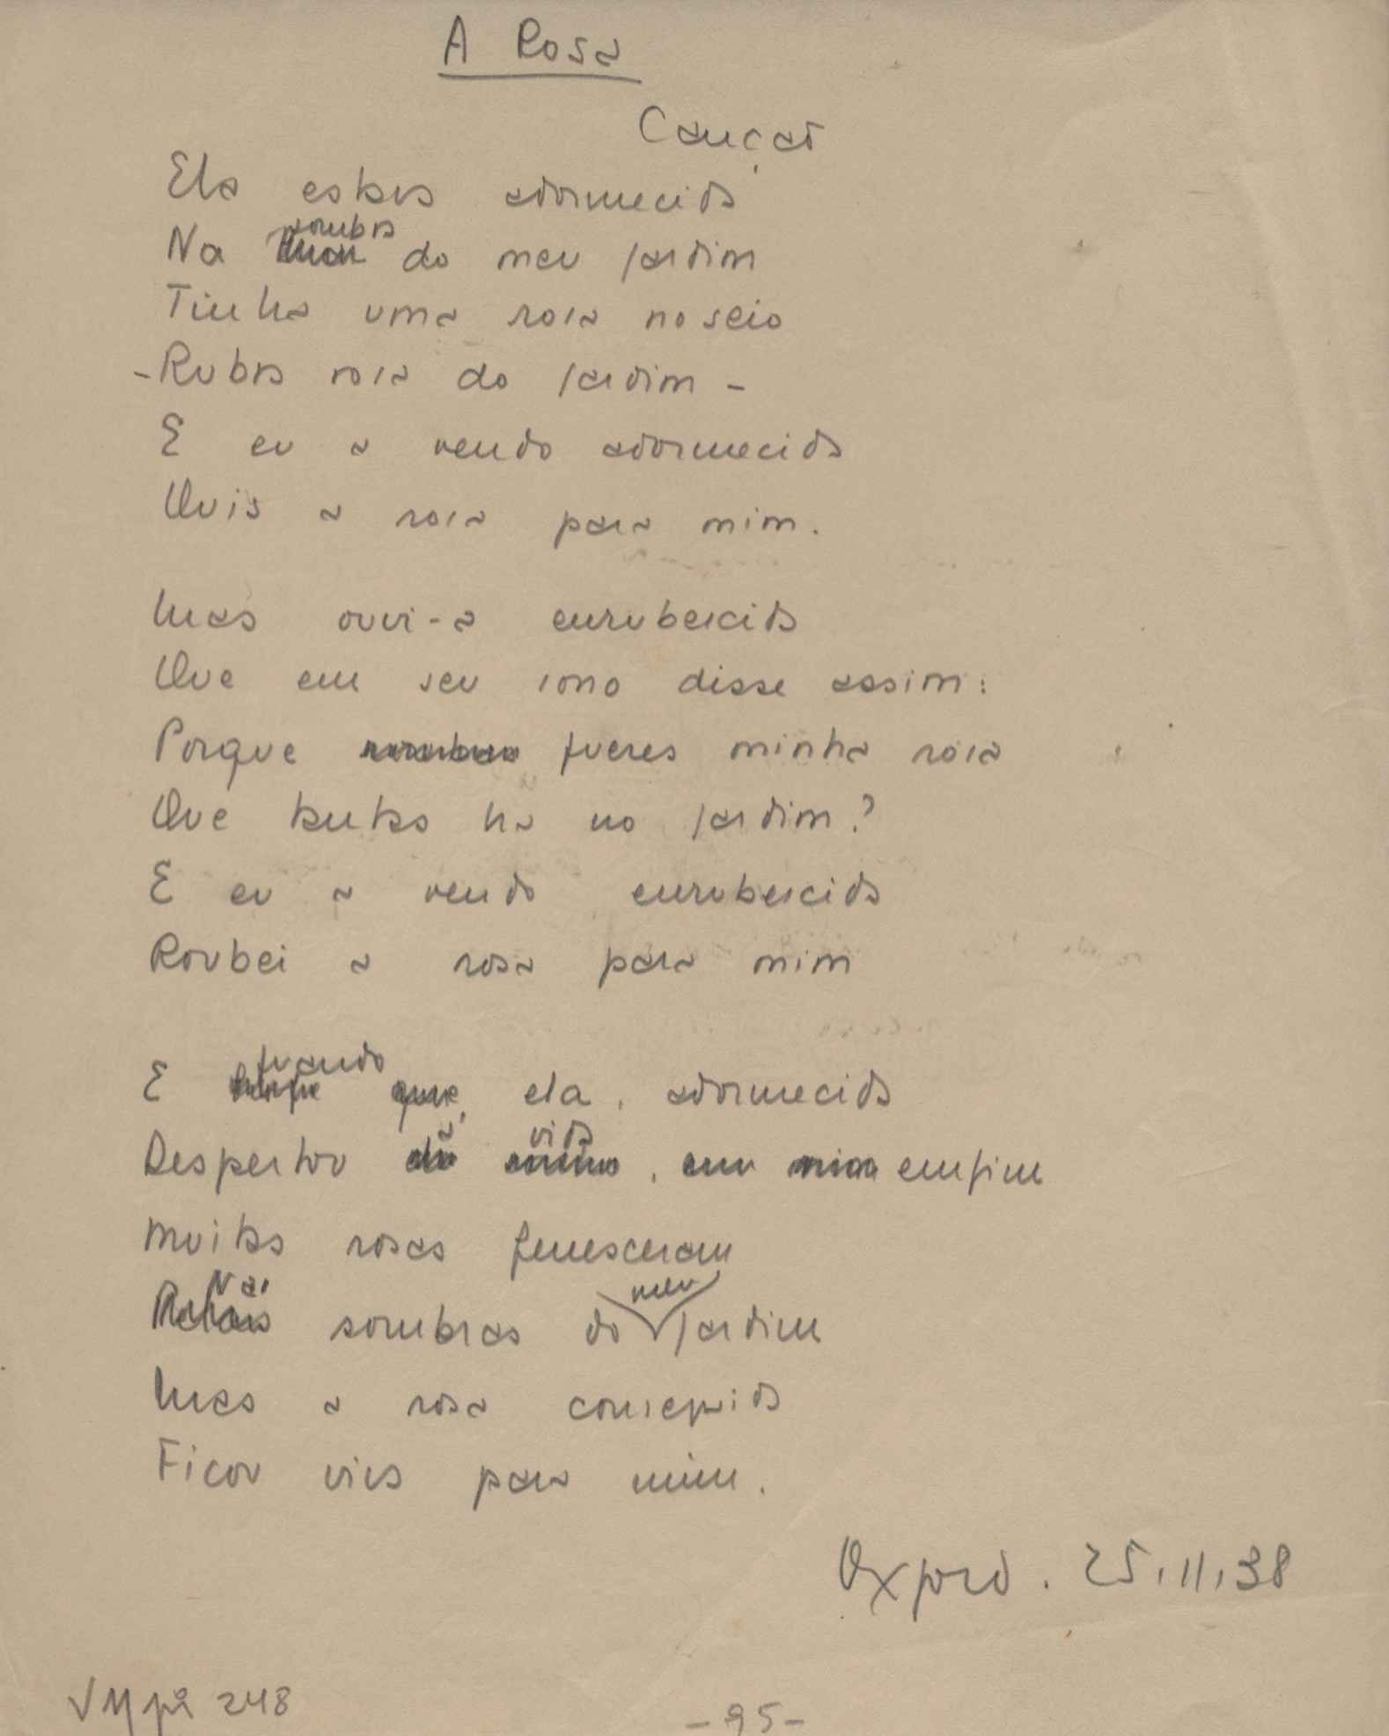 A Rosa
Canção
Ela estava adormecida
Na sombra do meu jardim
Tinha uma rosa no seio
- Rubra rosa do jardim -
E eu a vendo adormecida
Quis a rosa para mim.
Mas ouvi-a enrubescida
Que em seu sono disse assim:
Porque queres minha rosa
Que tantas ha no jardim?
E eu a vendo enrubescida
Roubei a rosa para mim
E quando ela, adormecida
Despertou à vida, emfim
Muitas rosas feneceram
Nas sombras do meu jardim
Mas a rosa conseguida
Ficou viva para mim.
Oxford. 25.11.38
VM pi 248
-95-